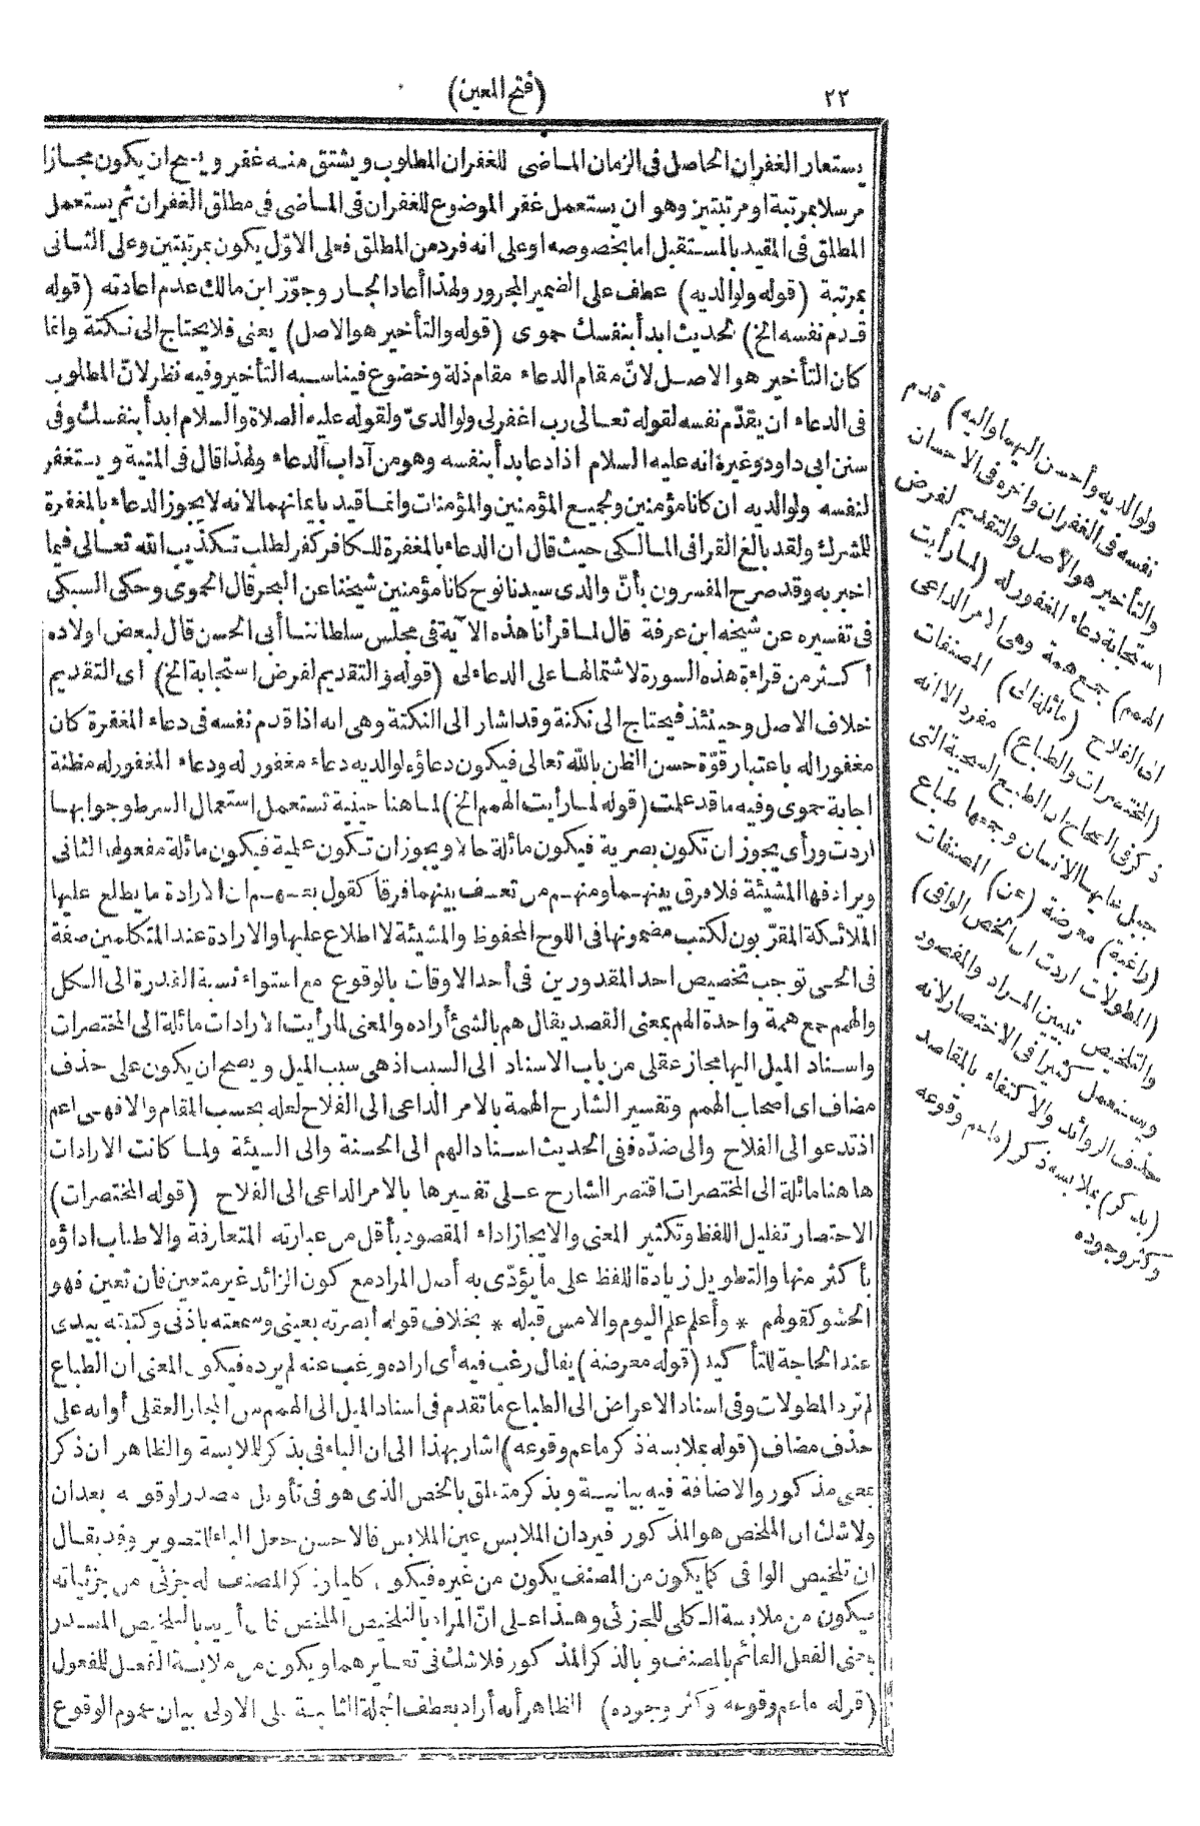 ٢٢
(فتح المعين)
يستعار الغفران الحاصل فى الزمان الماضى للغفران المطلوب ويشتق منه غفر ويصح ان يكون مجازا
مرسلا بمرتبة او مرتبتين وهو ان يستعمل غفر الموضوع للغفران فى الماضى فى مطلق الغفران ثم يستعمل
المطلق فى المقيد بالمستقبل اما بخصوصه او على انه فرد من المطلق فعلى الاوّل يكون بمرتبتين وعلى الثانى
بمرتبة (قوله ولوالديه) عطف على الضمير المجرور ولهذا أعاد الجار وجوّز ابن مالك عدم اعادته (قوله
قدم نفسه الخ) لحديث ابدأ بنفسك حموى (قوله والتأخير هو الاصل) يعنى فلا يحتاج الى نكتة وانما
كان التأخير هو الاصل لانّ مقام الدعاء مقام ذلة وخضوع فيناسبه التأخير وفيه نظر لانّ المطلوب
فى الدعاء ان يقدّم نفسه لقوله تعالى رب اغفر لى ولوالدىّ ولقوله عليه الصلاة والسلام ابدأ بنفسك وفى
سنن ابى داود وغيره انه عليه السلام اذا دعا بدأ بنفسه وهو من آداب الدعاء ولهذا قال فى المنية ويستغفر
لنفسه ولوالديه ان كانا مؤمنين ولجميع المؤمنين والمؤمنات وانما قيد بايمانهما لانه لا يجوز الدعاء بالمغفرة
للمشرك ولقد بالغ القرافى المالكى حيث قال ان الدعاء بالمغفرة للكافر كفر لطلب تكذيب الله تعالى فيما
اخبر به وقد صرح المفسرون بأنّ والدى سيدنا نوح كانا مؤمنين شيخنا عن البحر قال الحموى وحكى السبكى
فى تفسيره عن شيخه ابن عرفة قال لما قرأنا هذه الآية فى مجلس سلطاننا أبى الحسن قال لبعض اولاده
أكثر من قراءة هذه السورة لاشتمالها على الدعاء لى (قوله والتقديم لغرض استجابة الخ) اى التقديم
خلاف الاصل وحينئذ فيحتاج الى نكتة وقد اشار الى النكتة وهى انه اذا قدم نفسه فى دعاء المغفرة كان
مغفورا له باعتبار قوّة حسن الظن بالله تعالى فيكون دعاؤه لوالديه دعاء مغفور له ودعاء المغفور له مظنة
اجابة حموى وفيه ما قد علمت (قوله لما رأيت الهمم الخ) لما هنا حينية تستعمل استعمال الشرط وجوابها
اردت ورأى يجوز ان تكون بصرية فيكون مائلة حالا ويجوز ان تكون علمية فيكون مائلة مفعولها الثانى
ويرادفها المشيئة فلا فرق بينهما ومنهم من تعسف بينهما فرقا كقول بعضهم ان الارادة ما يطلع عليها
الملائكة المقرّبون لكتب مضمونها فى اللوح المحفوظ والمشيئة لا اطلاع عليها والارادة عند المتكلمين صفة
فى الحى توجب تخصيص احد المقدورين فى أحد الاوقات بالوقوع مع استواء نسبة القدرة الى الكل
والهمم جمع همة واحدة الهم بمعنى القصد يقال هم بالشئ أراده والمعنى لما رأيت الارادات مائلة الى المختصرات
واسناد الميل اليها مجاز عقلى من باب الاسناد الى السبب اذ هى سبب الميل ويصح ان يكون على حذف
مضاف اى اصحاب الهمم وتفسير الشارح الهمة بالامر الداعى الى الفلاح لعله بحسب المقام والا فهى اعم
اذ تدعو الى الفلاح والى ضدّه ففى الحديث اسناد الهم الى الحسنة والى السيئة ولما كانت الارادات
هاهنا مائلة الى المختصرات اقتصر الشارح على تفسيرها بالامر الداعى الى الفلاح (قوله المختصرات)
الاختصار تقليل اللفظ وتكثير المعنى والايجاز اداء المقصود بأقل من عبارته المتعارفة والاطناب اداؤه
بأكثر منها والتطويل زيادة اللفظ على ما يؤدّى به أصل المراد مع كون الزائد غير متعين فان تعين فهو
الحشو كقولهم * وأعلم علم اليوم والامس قبله * بخلاف قوله أبصرته بعينى وسمعته باذنى وكتبته بيدى
عند الحاجة للتأكيد (قوله معرضة) يقال رغب فيه أى اراده ورغب عنه لم يرده فيكون المعنى ان الطباع
لم ترد المطولات وفى اسناد الاعراض الى الطباع ما تقدم فى اسناد الميل الى الهمم من المجاز العقلى أو انه على
حذف مضاف (قوله بملابسة ذكر ما عم وقوعه) اشار بهذا الى ان الباء فى بذكر للملابسة والظاهر ان ذكر
بمعنى مذكور والاضافة فيه بيانية وبذكر متعلق بالخص الذى هو فى تأويل مصدر لوقوعه بعد ان
ولا شك ان الملخص هو المذكور فيرد ان الملابس عين الملابس فالاحسن جعل الباء للتصوير وقد يقال
ان تلخيص الوافى كما يكون من المصنف يكون من غيره فيكون كليا وذكر المصنف له جزئى من جزئياته
فيكون من ملابسة الكلى للجزئى وهذا على انّ المراد بالتلخيص الملخص فان أريد بالتلخيص المصدر
بمعنى الفعل القائم بالمصنف وبالذكر المذكور فلا شك فى تغايرهما ويكون من ملابسة الفعل للمفعول
(قوله ما عم وقوعه وكثر وجوده) الظاهر أنه أراد بعطف الجملة الثانية على الاولى بيان عموم الوقوع
ولوالديه وأحسن اليهما واليه) قدم
نفسه فى الغفران وأخره فى الاحسان
والتأخير هو الأصل والتقديم لغرض
استجابة دعاء المغفور له (لما رأيت
الهمم) جمع همة وهى الامر الداعى
الى الفلاح (مائلة الى) المصنفات
(المختصرات والطباع) مفرد الا انه
ذكر فى الصحاح ان الطبع السجية التى
جبل عليها الانسان وجمعها طباع
(راغبة) معرضة (عن) المصنفات
(المطولات اردت ان الخص الوافى)
والتلخيص تبيين المراد والمقصود
ويستعمل كثيرا فى الاختصار لانه
حذف الزوائد والاكتفاء بالمقاصد
(بذكر) بملابسة ذكر (ما عم وقوعه
وكثر وجوده